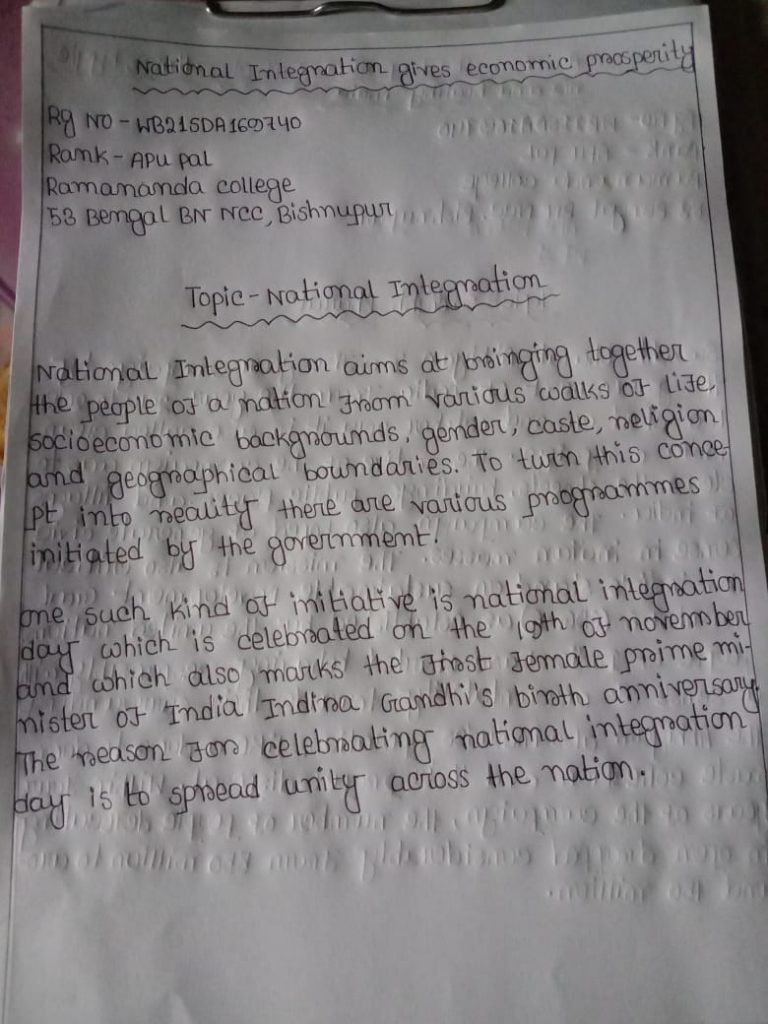 National Integration gives economic prosperity
Rg NO - WB21SDA169740
Rank - APU pal
Ramananda college
53 Bengal BN NCC, Bishnupur
Topic - National Integration
National Integration aims at bringing together
the people of a nation from various walks of life,
socioeconomic backgrounds, gender, caste, religion
and geographical boundaries. To turn this conce-
pt into reality there are various programmes
initiated by the government.
one such kind of initiative is national integration
day which is celebrated on the 19th of november
and which also marks the first female prime mi-
nister of India Indira Gandhi's birth anniversary.
The reason for celebrating national integration
day is to spread unity across the nation.